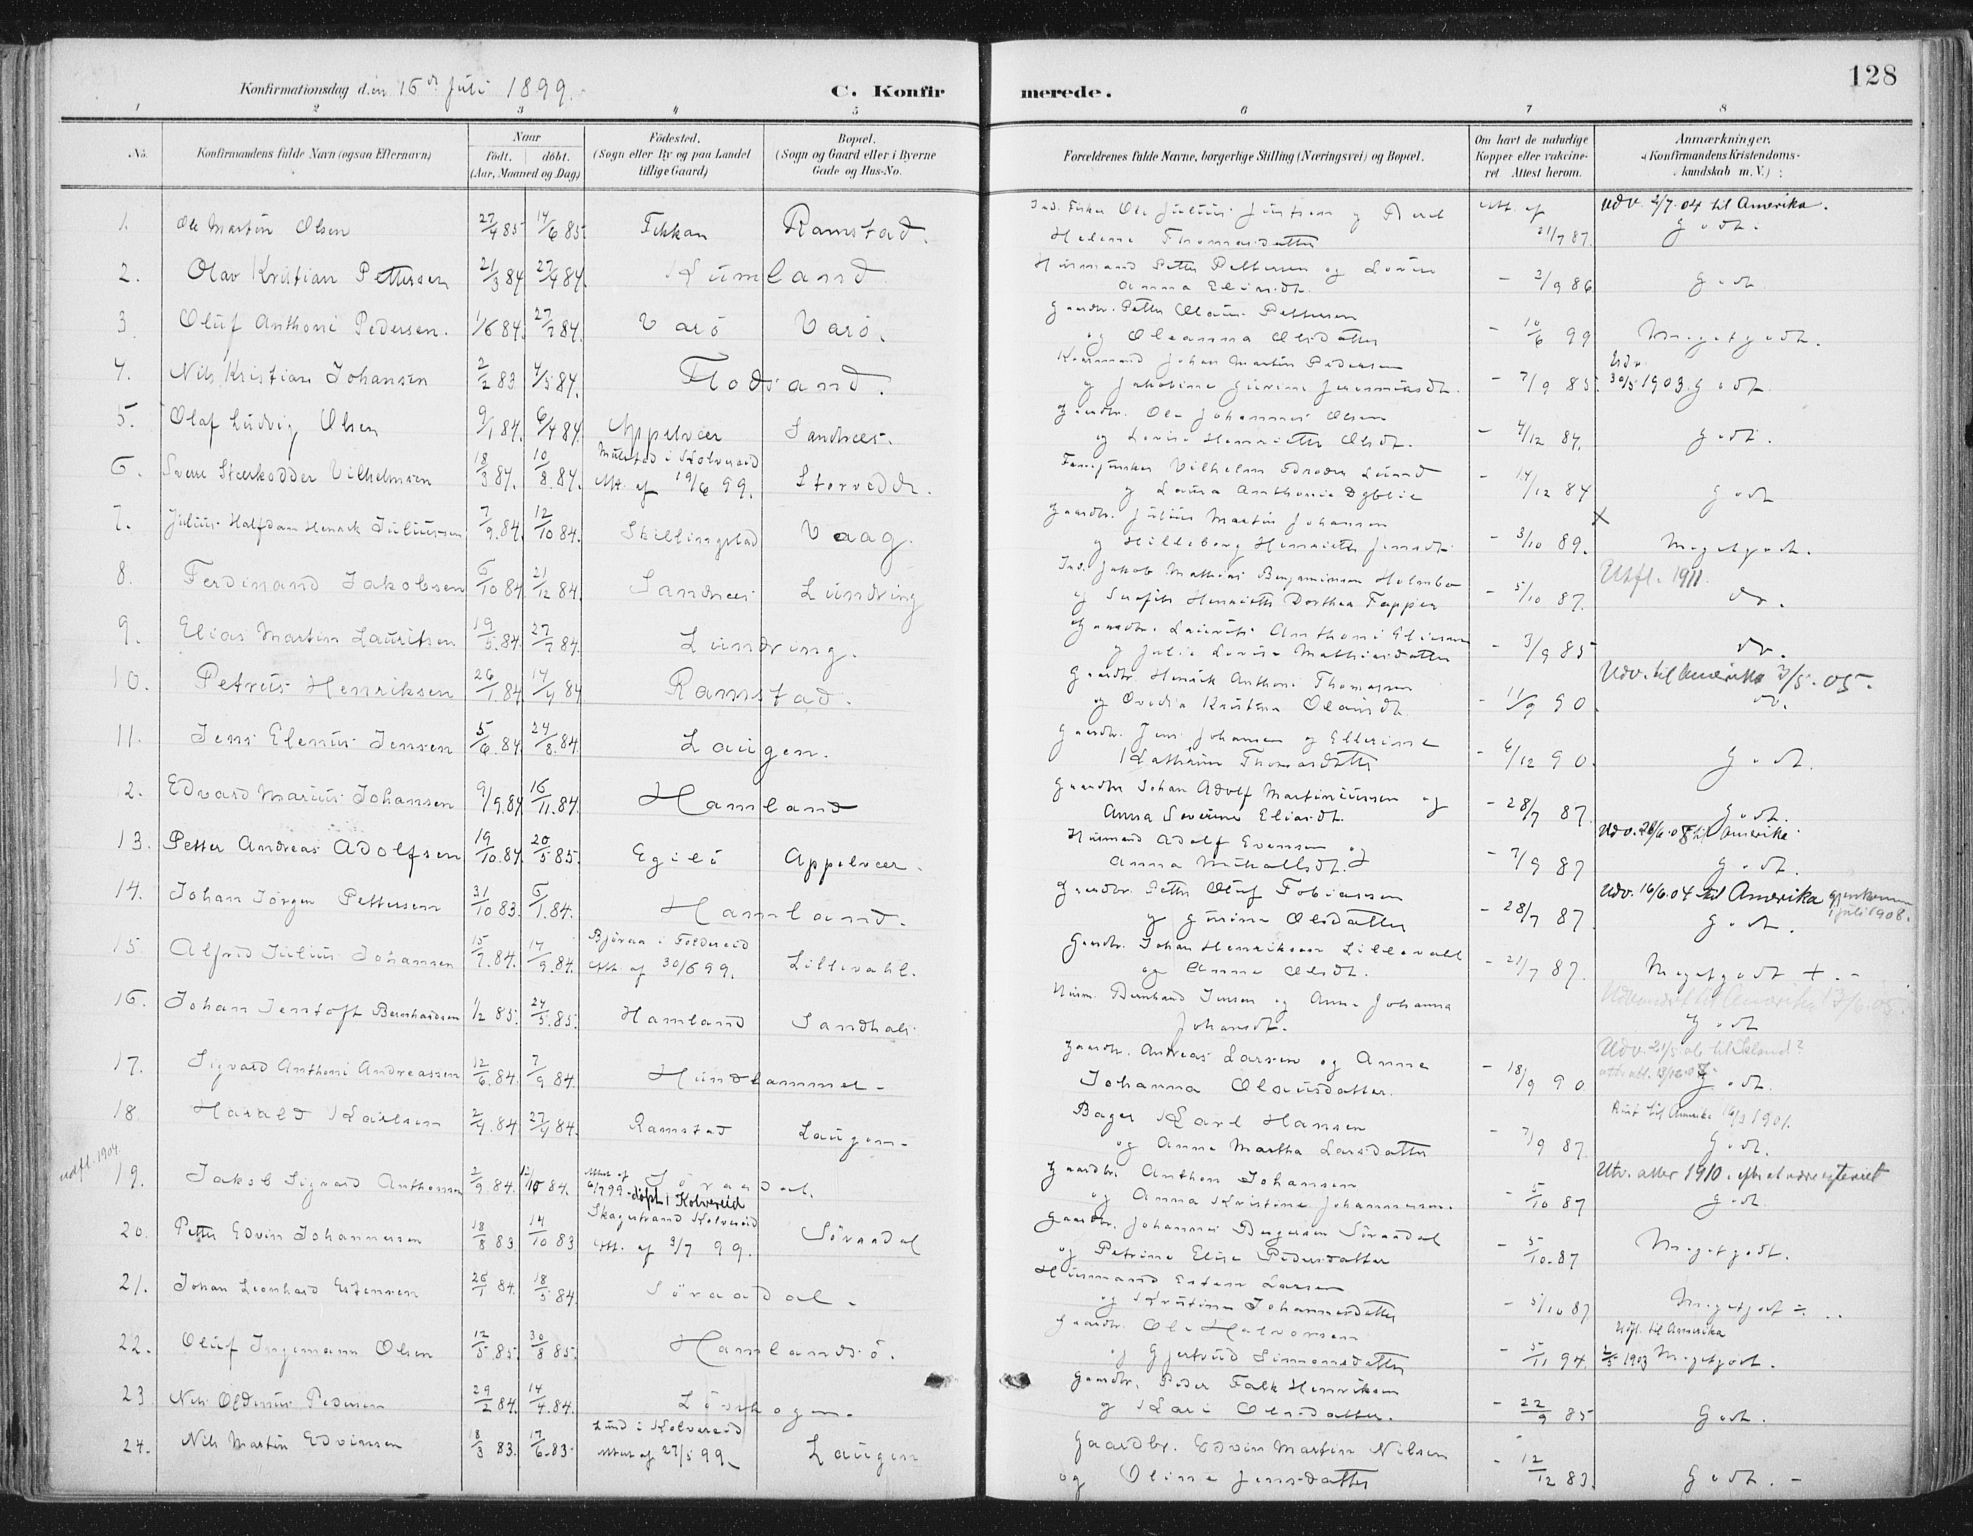 128
Konfirmationsdag den 16de Juli 1899.
C. Konfirmerede.
1 2 3 4 5 6 7 8
No. Konfirmandens fulde Navn (ogsaa Efternavn) Naar født. døbt. (Aar, Maaned og Dag) Fødested. (Sogn eller By og paa Landet tillige Gaard) Bopæl. (Sogn og Gaard eller i Byerne Gade og Hus-No. Forældrenes fulde Navne, borgerlige Stilling (Næringsvei) og Bopæl. Om havt de naturlige Kopper eller vakcineret Attest herom. Anmærkninger. (Konfirmandens Kristendomskundskab m. V.)
1. Ole Martin Olsen 27/4 85 14/6 85. Fikkan Ramstad. Ole Julius Justsen og Berel Att. af Udv. 2/7.04 til Amerika.
Helene Thomasdatter 21/7 87. Godt.
2. Olav Kristian Pettersen 21/3 84 27/4 84. Kumland Husmand Petter Pettersen og Lovise
Anna Eliasdt. - 2/9 86 Godt
3. Oluf Anthoni Pedersen. 1/6 84. 27/7 84. Varö Varö. Gaardbr. Petter Olaus Pettersen
og Oleanna Olsdatter - 10/6 99 Megetgodt.
4. Nils Kristian Johansen 2/2 83 4/5 84. Flodsand. Johan Martin Pedersen Udv.
og Jakobine Jeremiasdt. - 7/9 85. 30/5 1903. Godt
5. Olaf Ludvig Olsen 9/1 84. 6/4 84. Appelvær Sandnes. Gaardbr. Ole Johannes Olsen
og Lovise Henriette Olsdt. - 4/12 84. Godt.
6. Sverre Stærkodder Vilhelmsen 18/3 84. 10/8 84. i Kolvereid Att. af 19/6 99. Storvedde. Vilhelm Lund
og Laura Anthonie Dyblie - 14/12 84 Godt
7. Julius Halfdan Henrik Juliussen 7/9 84. 12/10 84. Skillingstad Vaag. Gaardbr. Julius Martin Johansen X
og Hilleborg Henriette Jensdt. - 3/10 89. Megetgodt.
8. Ferdinand Jakobsen 5/10 84 21/12 84. Sandnes Lundring Ind. Jakob Mathias Benjaminsen Holmbo Utfl. 1911.
og Serafie Henriette Dorthea - 5/10 87. do.
9. Elias Martin Lauritsen 19/5 84. 27/7 84. Lundring. Gaardbr. Laurits Anthoni Eliasen
og Julie Lovise Mathiasdatter - 3/9 85 do.
10. Petrus Henriksen 26/1 84 14/4 84 Ramstad. Gaardbr. Henrik Anthoni Thomassen Udv. til Amerika 3/5.05.
og Ovedia Kristina Olausdt. - 11/9 90. do.
11. Jens Elenus Jensen 5/6 84 24/8 84. Laugen. Gaardbr. Jens Johansen og Ellerine
Kathrine Thomasdatter - 6/12 90. Godt.
12. Edvard Marius Johansen 9/9 84 16/11 84. Hamland Gaardbr. Johan Adolf Martiniussen og
Anna Severine Eliasdt. - 28/7 87. Godt.
13. Petter Andreas Adolfsen 19/10 84. 20/5 85. Egilö Appelvær. Husmand Adolf Evensen og til Amerika
Anna Mikalsdt. - 7/9 87 Godt.
14. Johan Jörgen Pettersen 31/10 83. 6/1 84. Hamland. Gaardbr. Petter Oluf Tobiassen Udv. 16/6.04 til Amerika gjenkommen
og Gurine Olsdatter - 28/7 87. Godt. i juli 1908.
15. Alfred Julius Johansen 15/7 84. 14/9 84. Björaa i Foldereid Att. af 30/6 99. Lillevahl. Gaardbr. Johan Henriksen Lillevahl
og Anne Olsdt. - 21/7 87. Megetgodt +.-
16. Johan Jentoft Bernhardsen 1/2 85. 24/5 85. Hamland Sandhals Husm. Bernhard Jensen og Anna Johanna Udvandret til Amerika 13/6.05.
Johansdt. Godt
17. Sigvard Anthoni Andreassen 12/6 84. 7/9 84. Hundhammer - Gaardbr. Andreas Larsen og Anne
Johanna Olausdatter. - 18/9 90 Godt.
18. Harald Karlsen 2/4 84 27/4 84. Ramstad Laugen - Bager Karl Hansen Reist til Amerika 16/3 1901.
og Anne Martha Larsdatter - 7/9 87. Godt.
udfl. 1904.
19. Jakob Sigvard Anthonsen 2/9 84. 12/10 84. Attest af 6/7 99. döpt i Kolvereid Söraadal. Gaardbr. Anthon Johansen
og Anna Kristine Johannesen. - 5/10 87 Godt.
20. Petter Edvin Johannessen 18/8 83. 14/10 83 Skagestrand Kolvereid Att. af 3/7 99. Söraadal Gaardbr. Johannes Bergersen Söraadal
og Petrine Elise Pedersdatter - 5/10 87 Megetgodt.
21. Johan Leonhard Estensen 26/1 84. 18/5 84. Söraadal. Husmand Esten Larsen
og Kristine Johannesdatter - 5/10 87 Megetgodt ÷.
22. Oluf Ingemann Olsen 12/5 85. 30/8 85. Hamlandsö. Gaardbr. Ole Halvorsen Udfl. til Amerika
og Gjertrud Simonsdatter - 5/11 94. 2/5 1903 Megetgodt.
23. Nils Oldenus Pedersen 29/2 84. 14/4 84. Lövskogen. Gaardbr. Peder Falk Henriksen
og Kari Olsdatter. - 22/9 85 Godt.
24. Nils Martin Edvinsen 18/3 83. 17/6 83. Lund i Kolvereid Attest af 27/5 99. Laugen Gaardbr. Edvin Martin Nilsen
og Oline Jensdatter - 12/12 83. Godt. -